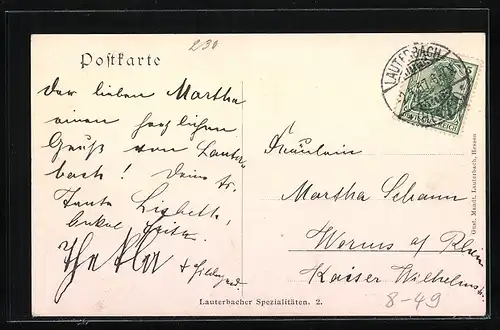 230
Postkarte
LAUTERBACH
Der lieben Martha
einen herzlichen
Gruß von Lauter-
bach! Deine tr.
Tante Lisbeth,
Onkel Fritz.
Thekla
+ Hildegard.
Fräulein
Martha Schaum
Worms a/ Rhein
Kaiser Wilhelmstr.
8-49
Lauterbacher Spezialitäten. 2.
Gust. Mandt, Lauterbach, Hessen